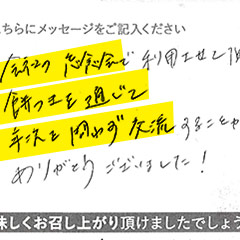 ちらにメッセージをご記入ください
会社の忘年会で利用させて頂
餅つきを通じて
年次を問わず交流することが
ありがとうございました!
味しくお召し上がり頂けましたでしょう